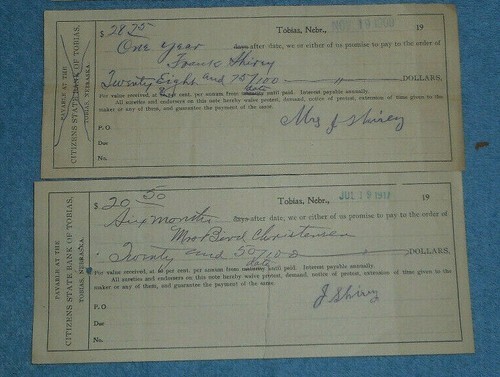 PAYABLE AT THE
CITIZENS STATE BANK OF TOBIAS,
TOBIAS, NEBRASKA.
$ 28 75 Tobias, Nebr., 19
One year days after date, we or either of us promise to pay to the order of
Frank Shirey
Twenty Eight and 75/100 " DOLLARS,
For value received, at per cent. per annum from date maturity until paid. Interest payable annually.
All sureties and endorsers on this note hereby waive protest, demand, notice of protest, extension of time given to the
maker or any of them, and guarantee the payment of the same.
P. O. Mrs J Shirey
Due
No.
PAYABLE AT THE
CITIZENS STATE BANK OF TOBIAS,
TOBIAS, NEBRASKA.
$ 20 50 Tobias, Nebr., 19
Six months days after date, we or either of us promise to pay to the order of
Mrs Bird Christensen
Twenty and 50/100 " DOLLARS,
For value received, at per cent. per annum from date maturity until paid. Interest payable annually.
All sureties and endorsers on this note hereby waive protest, demand, notice of protest, extension of time given to the
maker or any of them, and guarantee the payment of the same.
P. O. J Shirey
Due
No.